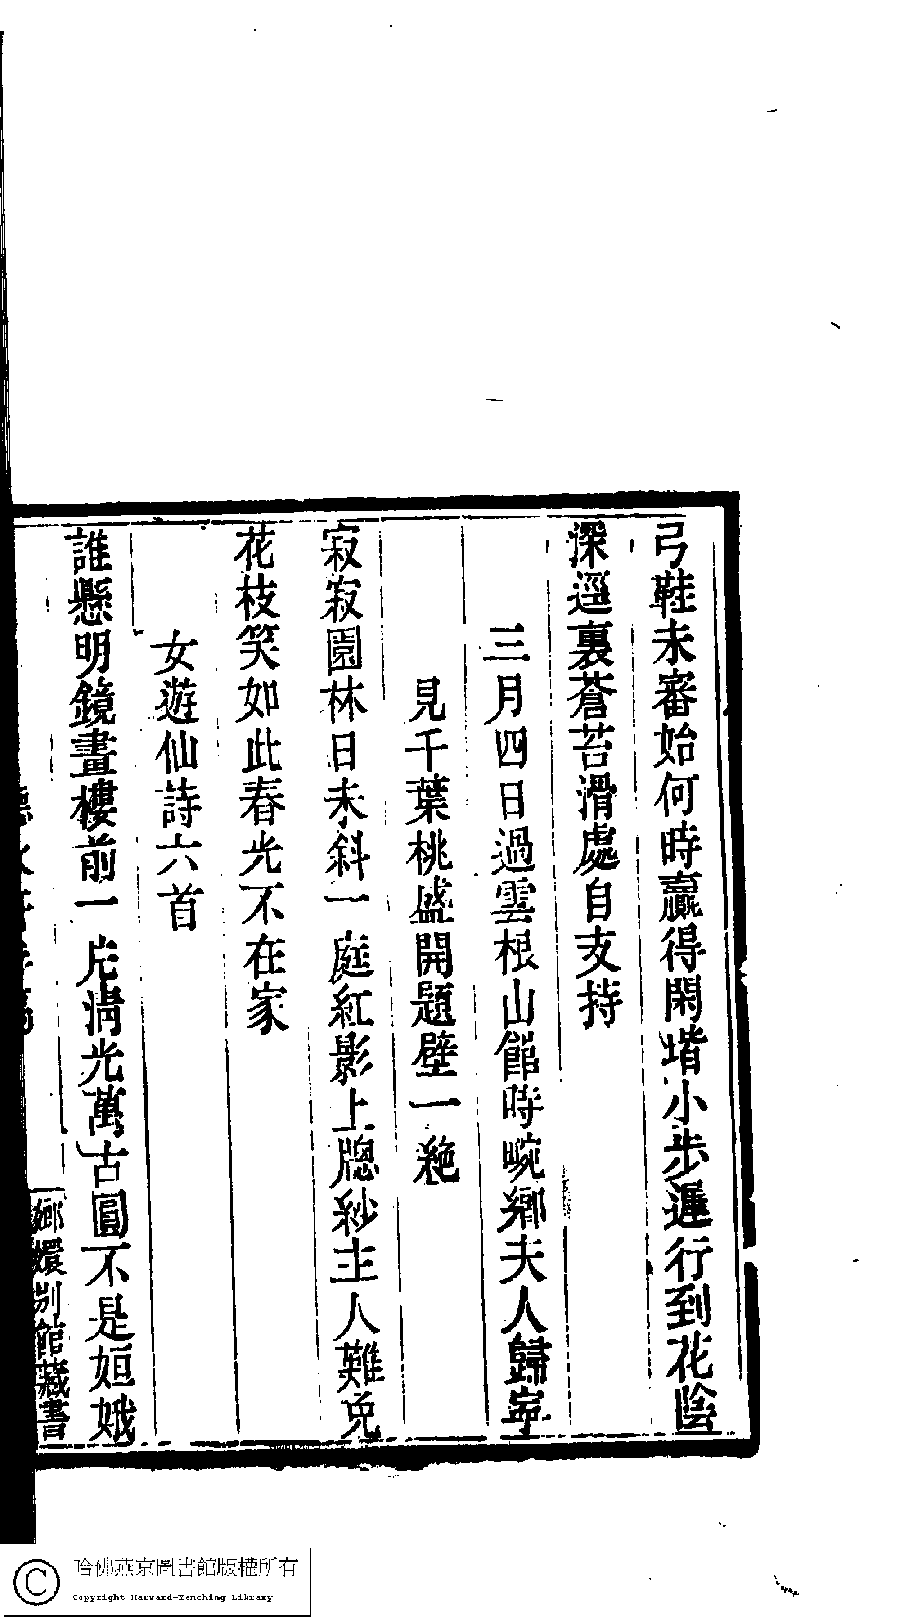 弓鞋未審始何時贏得閑堦小步遲行到花陰
深逕裏蒼苔滑處自支持
三月四日過雲根山館時畹鄉夫人歸寧
見千葉桃盛開題壁一絶
寂寂園林日未斜一庭紅影上牕紗主人難免
花枝笑如此春光不在家
女遊仙詩六首
誰懸明鏡畫樓前一片淸光萬古圓不是姮娥
嫏嬛别館藏書
哈佛燕京圖書館版權所有
Copyright Harvard-Yenching Library